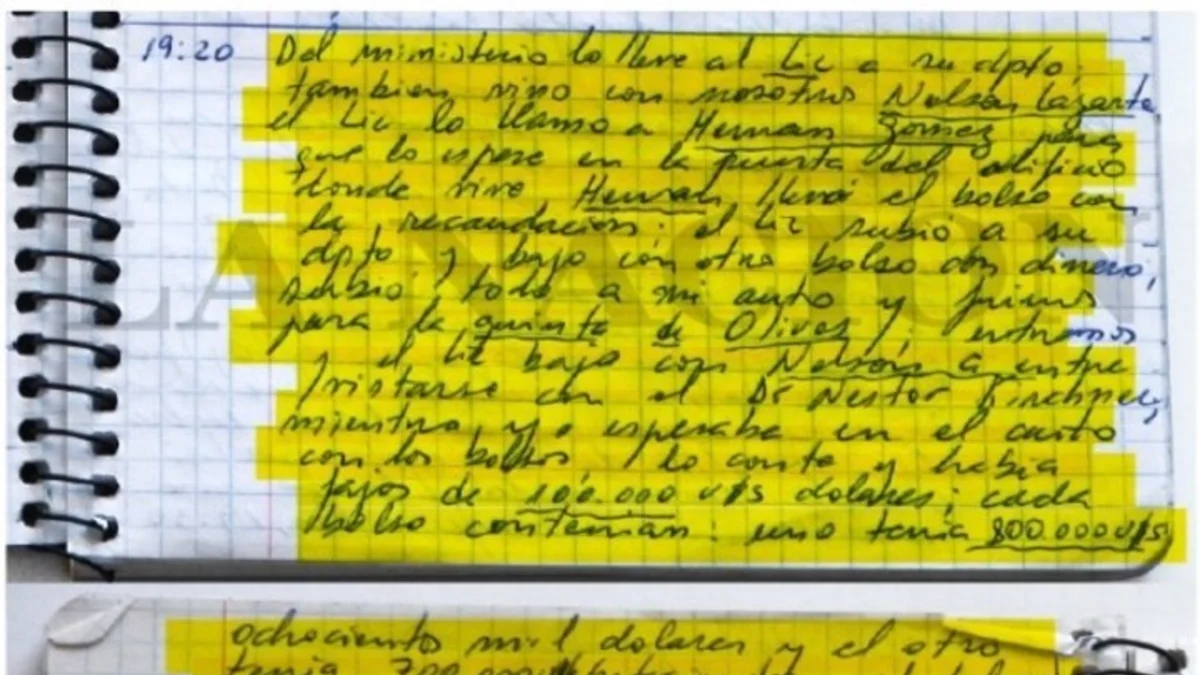 19:20 Del ministerio lo lleve al Lic a su dpto;
tambien vino con nosotros Nelson Lazarte
el Lic lo llamo a Hernan Gomez para
que lo espere en la puerta del edificio
donde vive Hernan llevó el bolso con
la recaudacion; el Lic subio a su
dpto y bajo con otro bolso con dinero,
subio todo a mi auto y fuimos
para la quinta de Olivos; entramos
y el Lic bajo con Nelson a entre
vistarse con el Dr Nestor Kirchner,
mientras yo esperaba en el auto
con los bolsos, lo conte y habia
fajos de 100.000 U$S dolares; cada
bolso contenian: uno tenia 800.000 U$S
ochociento mil dolares y el otro
tenia 700.000
LA NACION